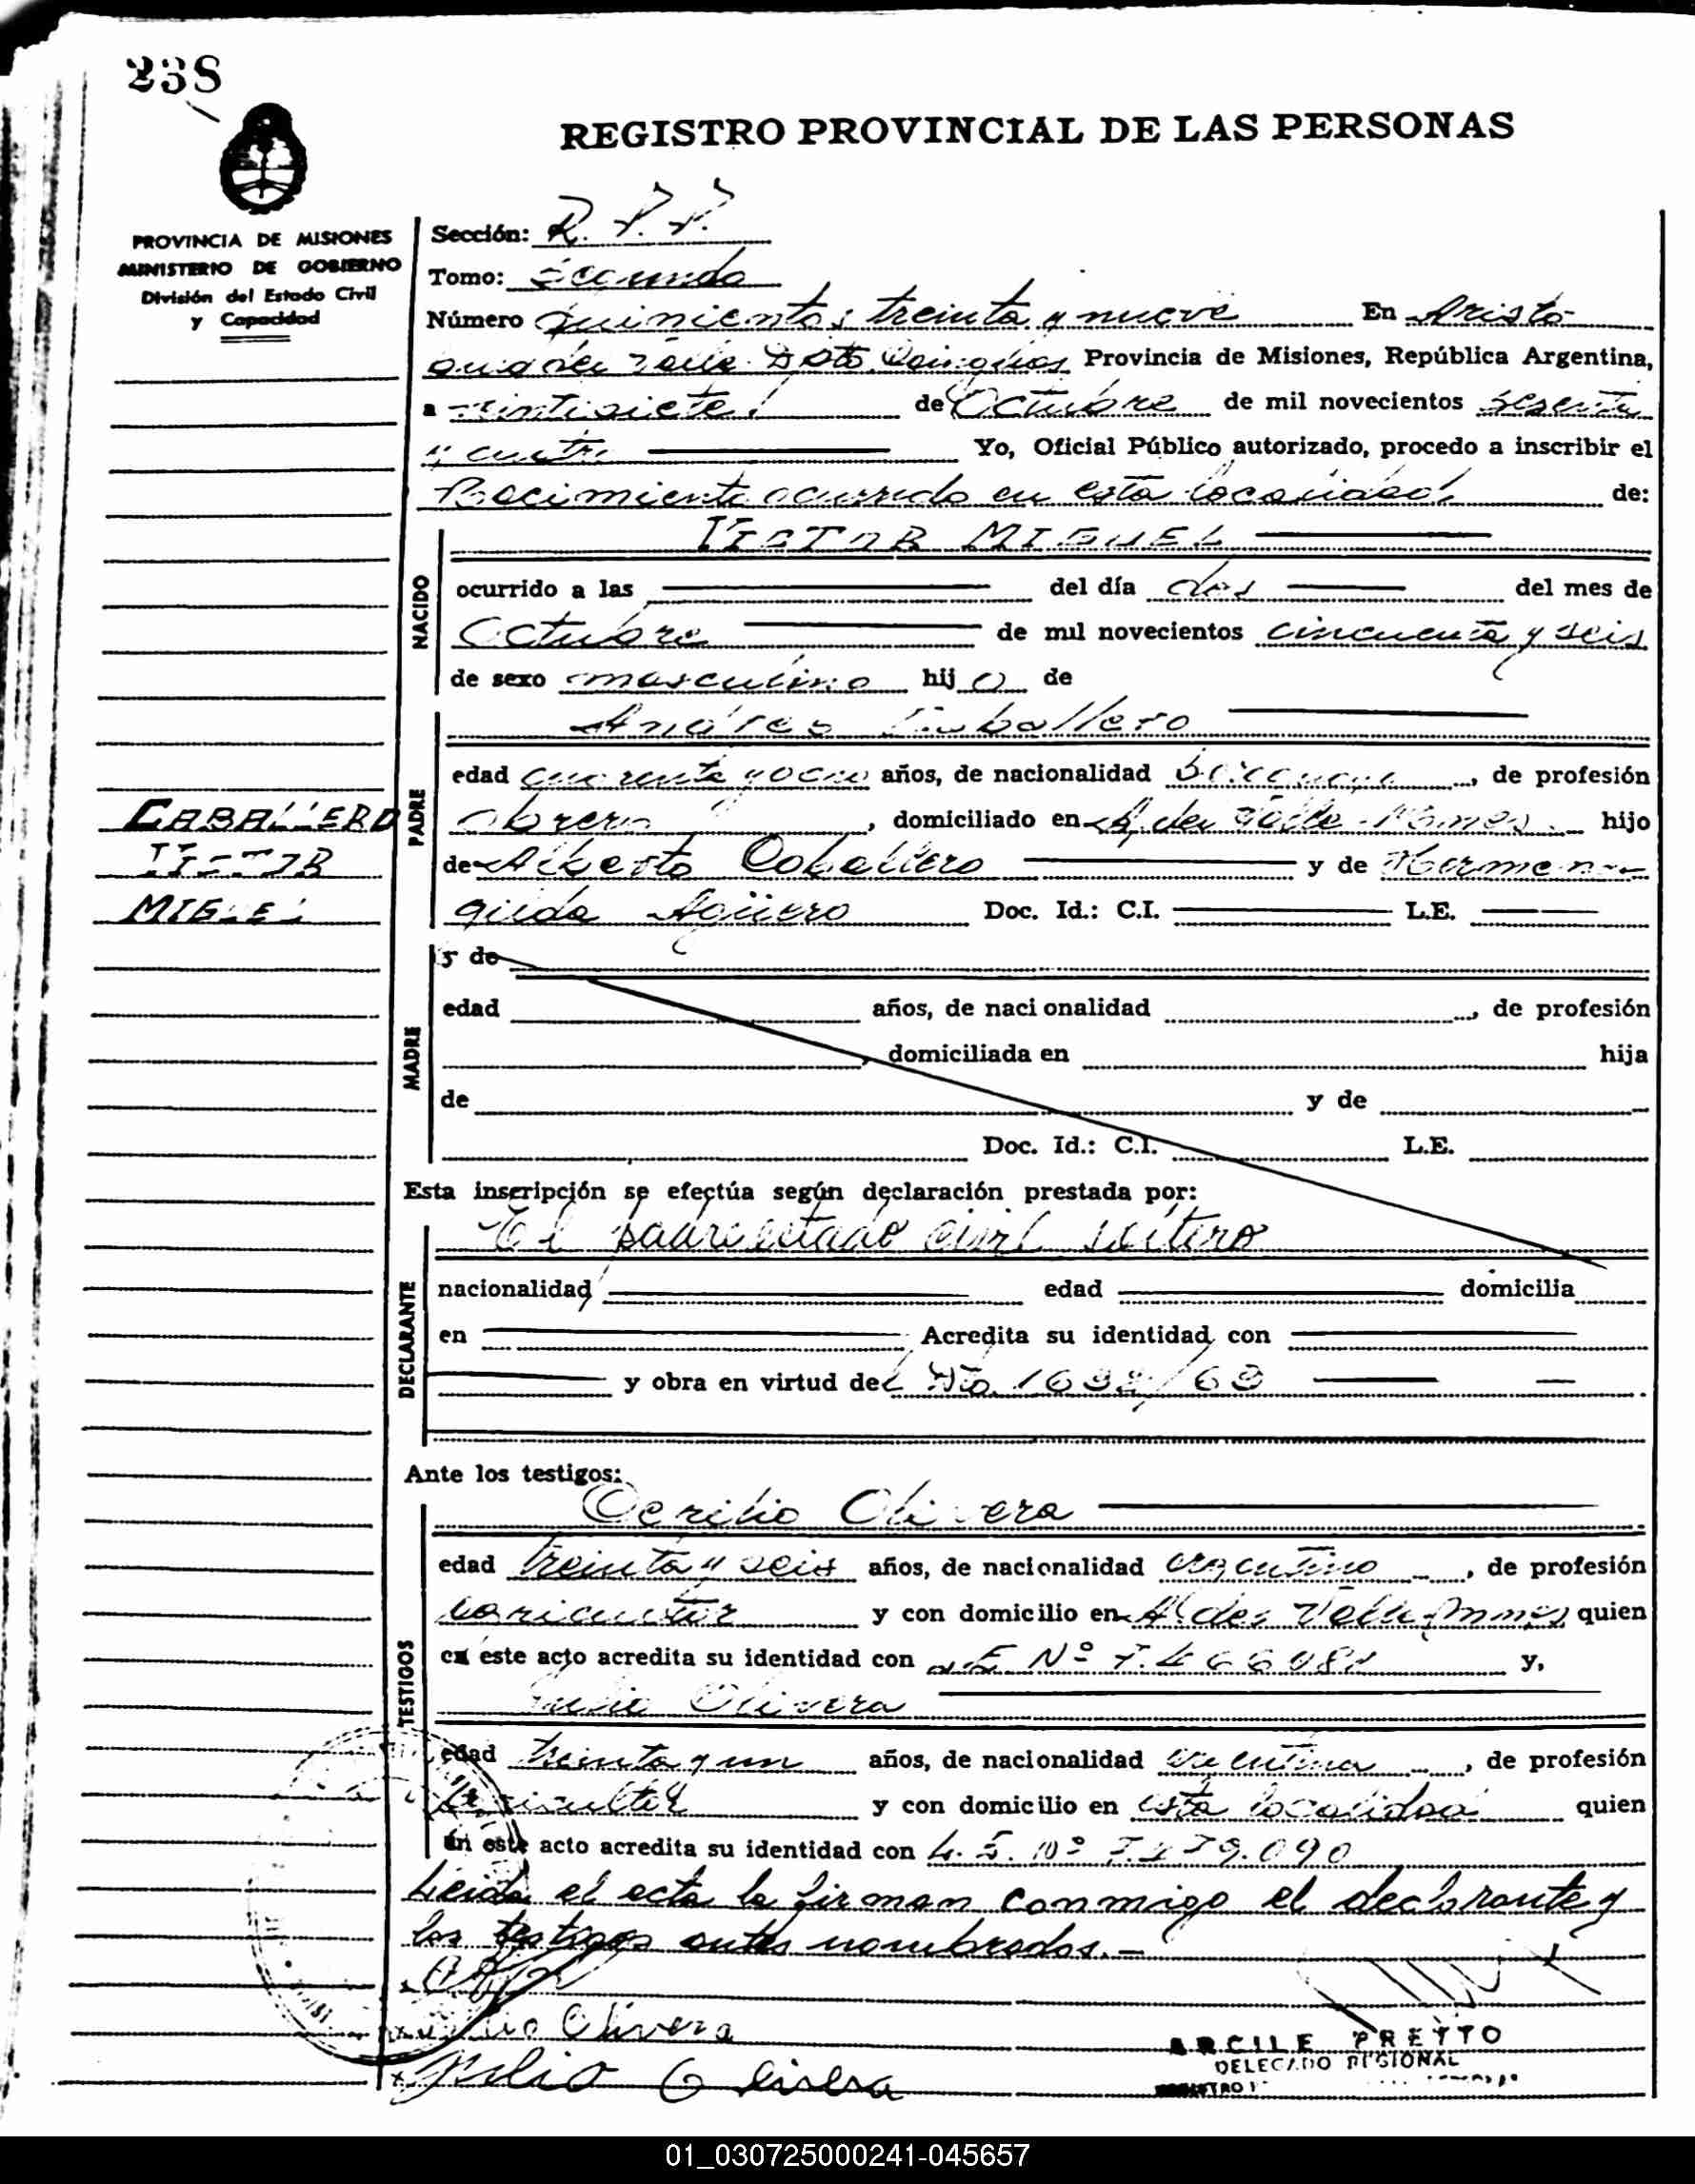 238
REGISTRO PROVINCIAL DE LAS PERSONAS
PROVINCIA DE MISIONES
MINISTERIO DE GOBIERNO
División del Estado Civil
y Capacidad
Sección: R. P. P.
Tomo: Segundo
Número Quinientos treinta y nueve En Aristó-
bulo del Valle Dpto. Cainguás Provincia de Misiones, República Argentina,
a veintisiete de Octubre de mil novecientos sesenta
y cuatro Yo, Oficial Público autorizado, procedo a inscribir el
Nacimiento ocurrido en esta localidad de:
NACIDO
VICTOR MIGUEL
ocurrido a las del día dos del mes de
Octubre de mil novecientos cincuenta y seis
de sexo masculino hijo de
PADRE
Andrés Caballero
edad cuarenta y ocho años, de nacionalidad , de profesión
obrero , domiciliado en A. del Valle Mnes. hijo
de Alberto Caballero y de Hermene-
gilda Agüero Doc. Id.: C.I. L.E.
CABALLERO
VICTOR
MIGUEL
MADRE
y de
edad años, de nacionalidad , de profesión
, domiciliada en hija
de y de
Doc. Id.: C.I. L.E.
Esta inscripción se efectúa según declaración prestada por:
DECLARANTE
El padre estado civil soltero
nacionalidad edad domicilia
en Acredita su identidad con
y obra en virtud del
Ante los testigos:
TESTIGOS
Olivera
edad treinta y seis años, de nacionalidad argentino , de profesión
agricultor y con domicilio en A. del Valle Mnes, quien
en este acto acredita su identidad con L.E. Nº y,
Julio Olivera
edad treinta y un años, de nacionalidad argentina , de profesión
agricultor y con domicilio en esta localidad quien
en este acto acredita su identidad con L.E. Nº
Leida el acta la firman conmigo el declarante y
los testigos antes nombrados.-
Olivera
Julio Olivera
ARCILE PRETTO
DELEGADO REGIONAL
01_030725000241-045657